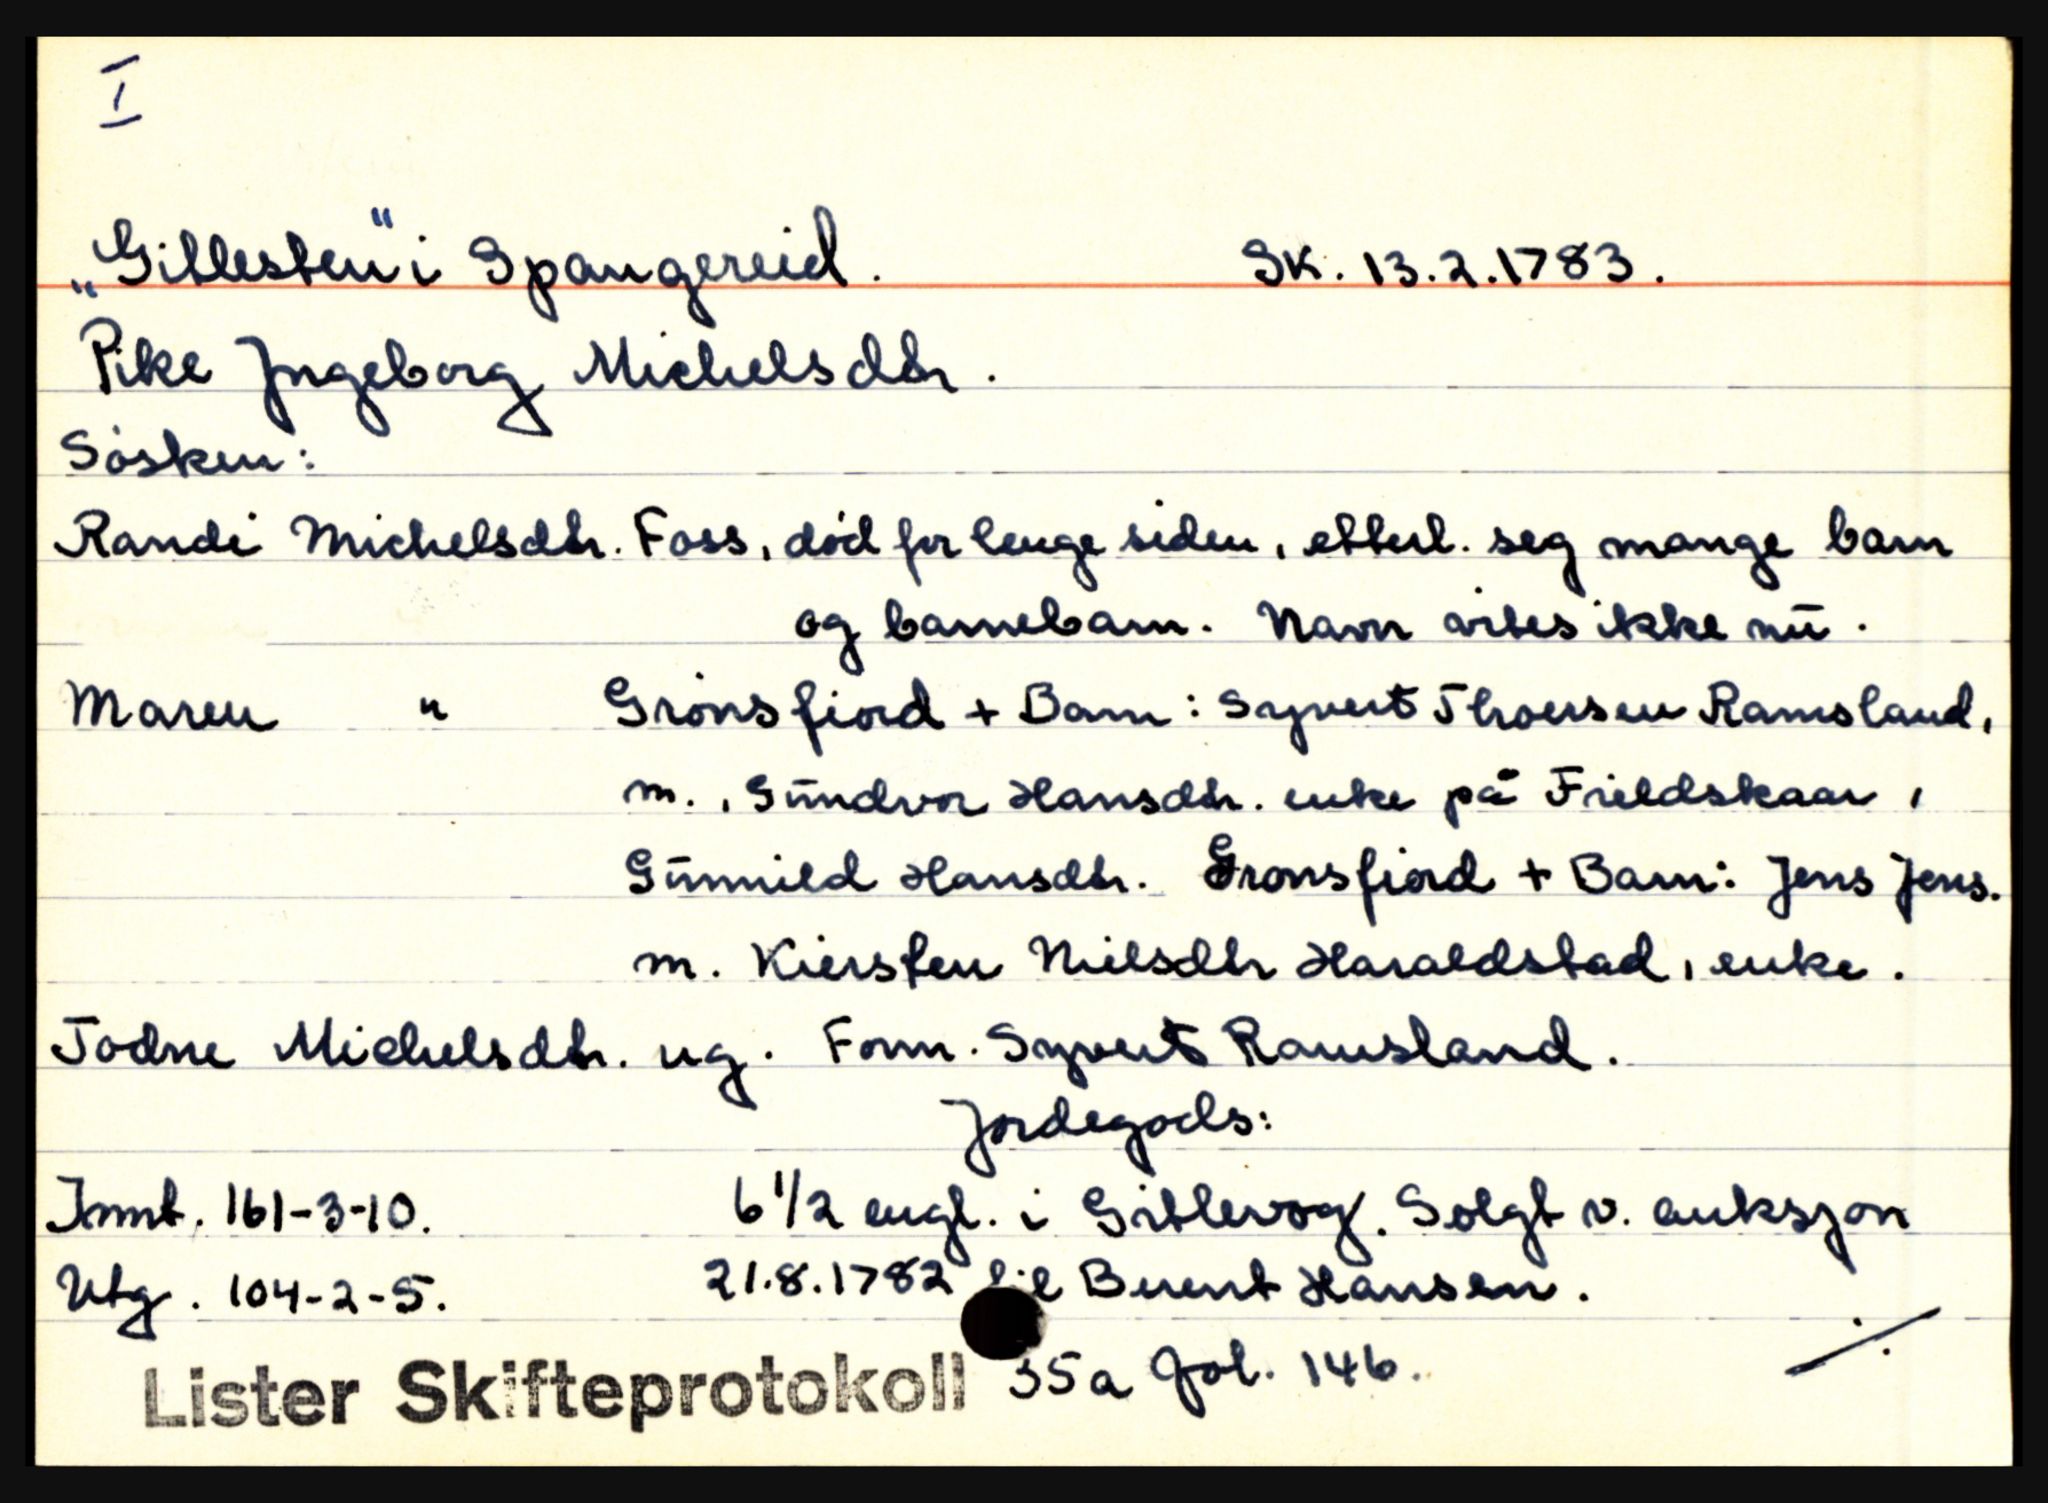 I
„Gitlesten“ i Spangereid. Sk. 13.2.1783.
Pike Ingeborg Michelsdtr.
Søsken:
Randi Michelsdtr. Foss, død for lenge siden, etterl. seg mange barn
og barnebarn. Navn vites ikke nū.
Maren " Grønsfiord + Barn: Syvert Thoersen Ramsland,
m., Gūndvor Hansdtr. enke på Frieldskaar,
Gūnnild Hansdtr. Grønsfiord + Barn: Jens Jens.
m. Kiersten Nielsdtr Haraldstad, enke.
Todne Michelsdtr. ug. Form. Syvert Ramsland.
Jordegods:
Innt. 161-3-10. 6 1/2 engl. i Gitlevog. Solgt v. auksjon
Utg. 104-2-5. 21.8.1782 til Berent Hansen.
Lister Skifteprotokoll 35a fol. 146. ⁒